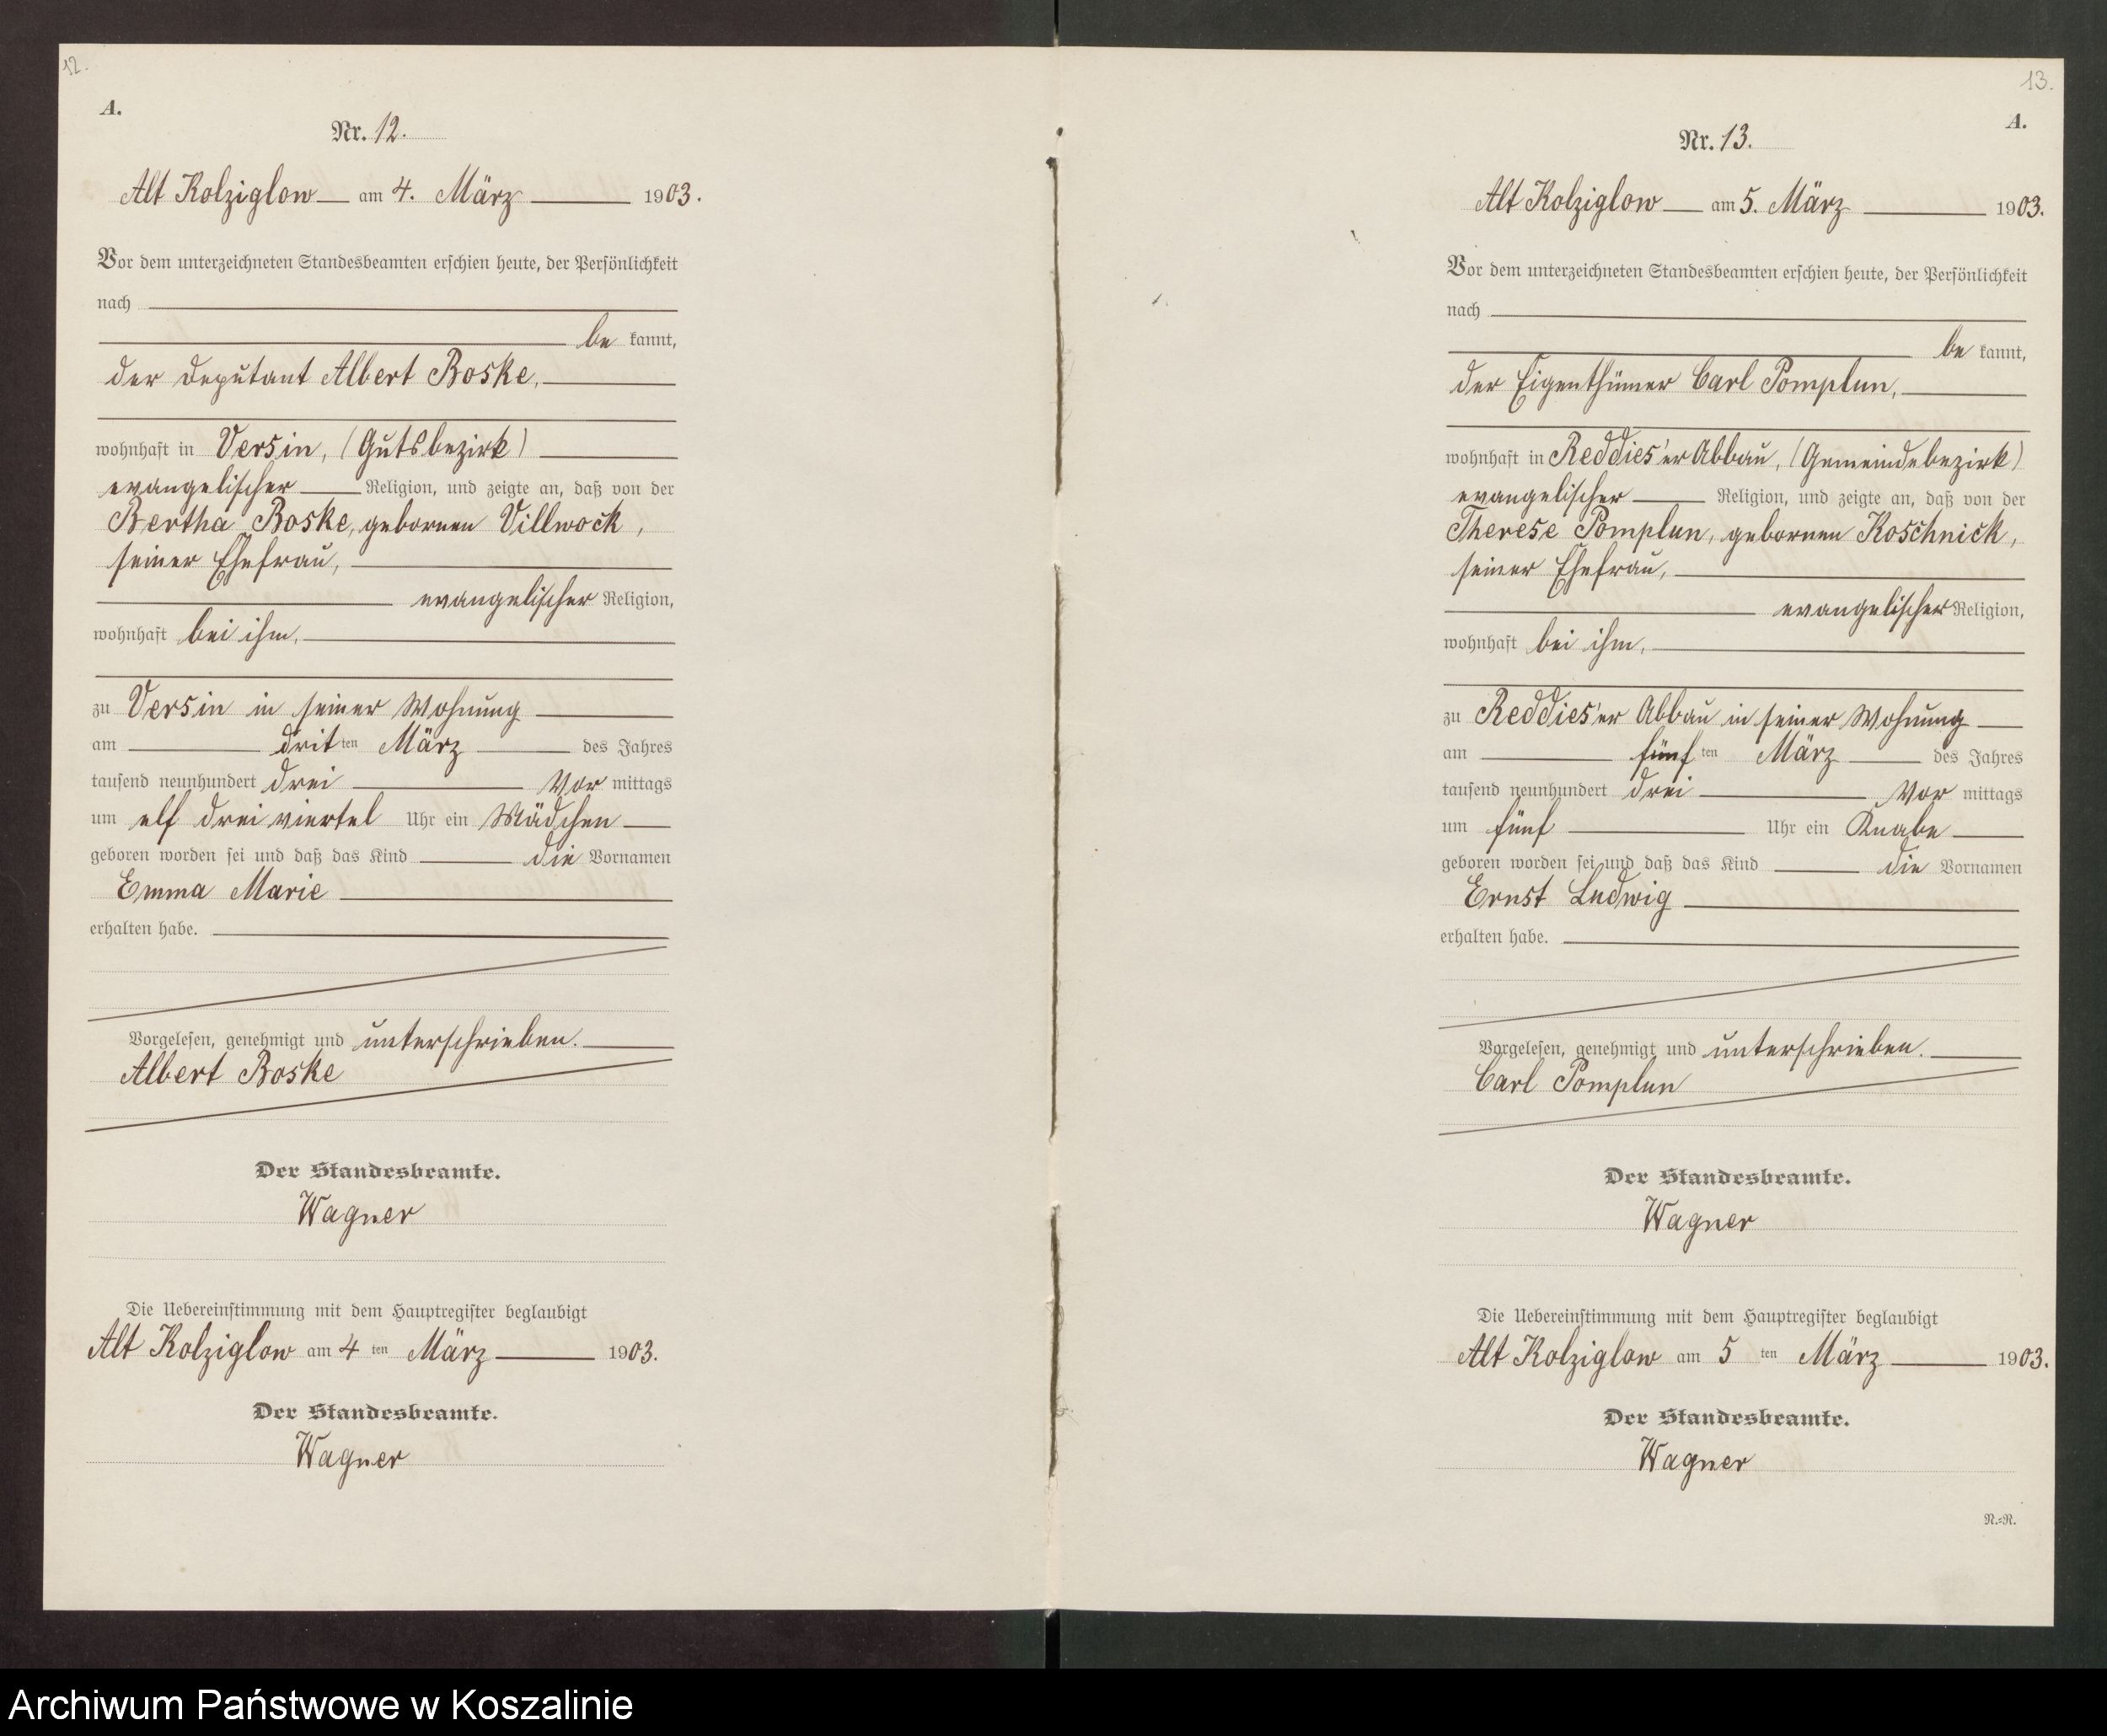 12.
A.
Nr. 12.
Alt Kolziglow am 4. März 1903.
Vor dem unterzeichneten Standesbeamten erschien heute, der Persönlichkeit
nach
be kannt,
der Deputant Albert Boske,
wohnhaft in Versin, (Gutsbezirk)
evangelischer Religion, und zeigte an, daß von der
Bertha Boske, gebornen Villwock,
seiner Ehefrau,
evangelischer Religion,
wohnhaft bei ihm,
zu Versin in seiner Wohnung
am dritten März des Jahres
tausend neunhundert drei Vor mittags
um elf drei viertel Uhr ein Mädchen
geboren worden sei und daß das Kind die Vornamen
Emma Marie
erhalten habe.
Vorgelesen, genehmigt und unterschrieben.
Albert Boske
Der Standesbeamte.
Wagner
Die Uebereinstimmung mit dem Hauptregister beglaubigt
Alt Kolziglow am 4 ten März 1903.
Der Standesbeamte.
Wagner
13.
A.
Nr. 13.
Alt Kolziglow am 5. März 1903.
Vor dem unterzeichneten Standesbeamten erschien heute, der Persönlichkeit
nach
be kannt,
der Eigenthümer Carl Pomplun,
wohnhaft in Reddies'er Abbau, (Gemeindebezirk)
evangelischer Religion, und zeigte an, daß von der
Therese Pomplun, gebornen Koschnick,
seiner Ehefrau,
evangelischer Religion,
wohnhaft bei ihm,
zu Reddies'er Abbau in seiner Wohnung
am fünf ten März des Jahres
tausend neunhundert drei Vor mittags
um fünf Uhr ein Knabe
geboren worden sei und daß das Kind die Vornamen
Ernst Ludwig
erhalten habe.
Vorgelesen, genehmigt und unterschrieben.
Carl Pomplun
Der Standesbeamte.
Wagner
Die Uebereinstimmung mit dem Hauptregister beglaubigt
Alt Kolziglow am 5 ten März 1903.
Der Standesbeamte.
Wagner
N.=N.
Archiwum Państwowe w Koszalinie